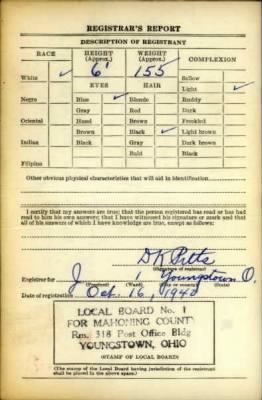 REGISTRAR'S REPORT
DESCRIPTION OF REGISTRANT
RACE HEIGHT (Approx.) WEIGHT (Approx.) COMPLEXION
White ✓ 6' 155 Sallow
EYES HAIR Light ✓
Negro Blue ✓ Blonde Ruddy
Gray Red Dark
Oriental Hazel Brown Freckled
Brown Black ✓ Light brown
Indian Black Gray Dark brown
Bald Black
Filipino
Other obvious physical characteristics that will aid in identification
I certify that my answers are true; that the person registered has read or has had
read to him his own answers; that I have witnessed his signature or mark and that
all of his answers of which I have knowledge are true, except as follows:
D K Pitts
(Signature of registrar)
Registrar for J 1 Youngstown O.
(Precinct) (Ward) (City or county) (State)
Date of registration Oct. 16, 1940
LOCAL BOARD No. 1
FOR MAHONING COUNTY
Rm. 318 Post Office Bldg
YOUNGSTOWN, OHIO
(STAMP OF LOCAL BOARD)
(The stamp of the Local Board having jurisdiction of the registrant
shall be placed in the above space.)